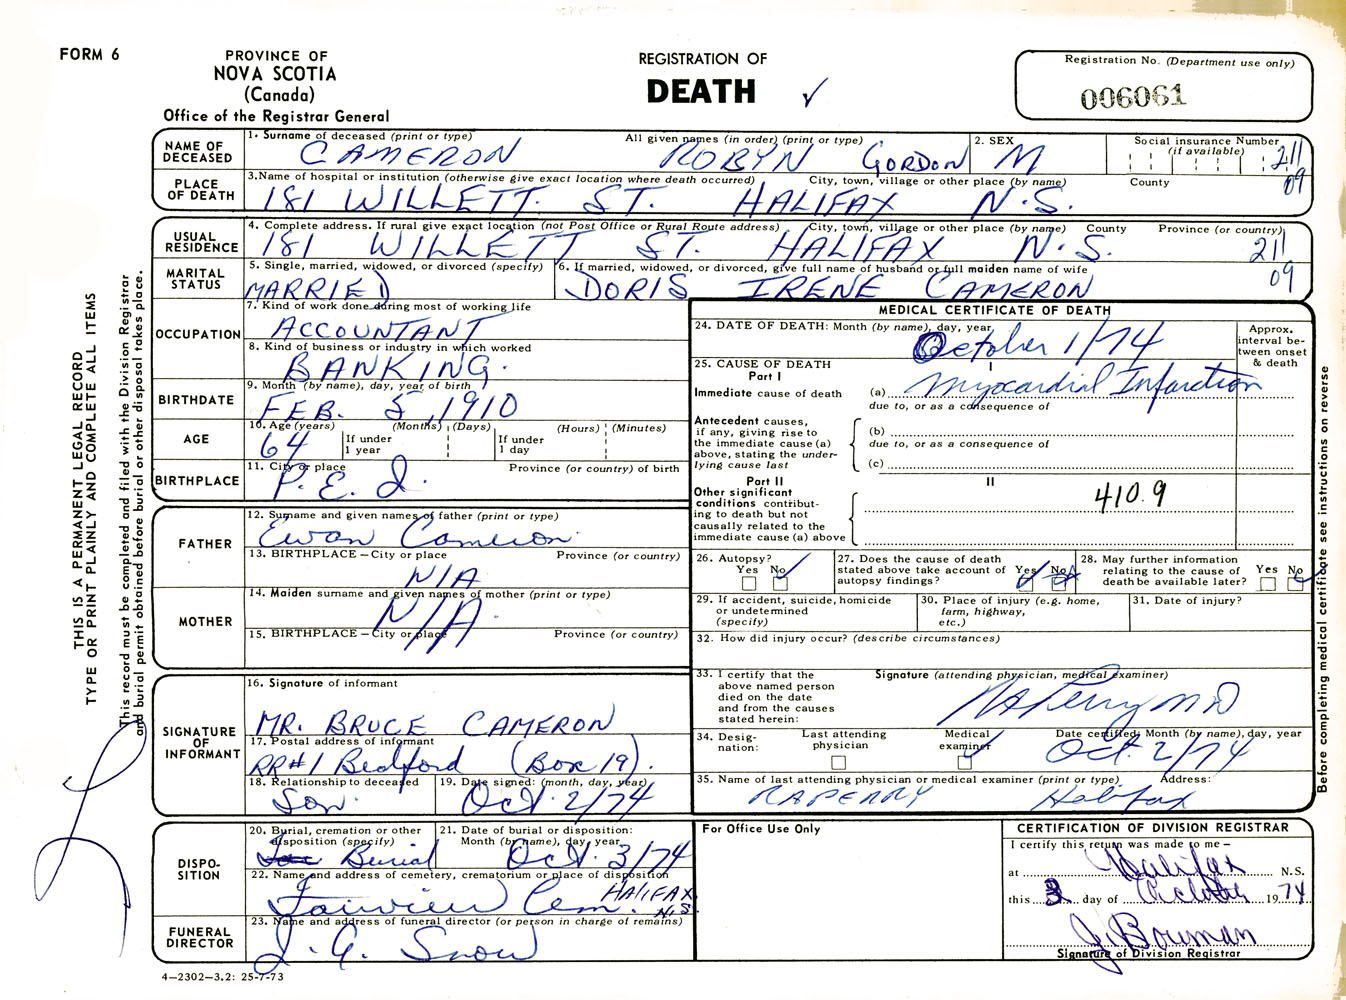 FORM 6
PROVINCE OF
NOVA SCOTIA
(Canada)
Office of the Registrar General
REGISTRATION OF
DEATH ✓
Registration No. (Department use only)
006061
NAME OF DECEASED
1. Surname of deceased (print or type) All given names (in order) (print or type)
CAMERON ROBYN GORDON
2. SEX
M
Social insurance Number (if available)
211
09
PLACE OF DEATH
3. Name of hospital or institution (otherwise give exact location where death occurred) City, town, village or other place (by name) County
181 WILLETT. ST. HALIFAX N.S.
USUAL RESIDENCE
4. Complete address. If rural give exact location (not Post Office or Rural Route address) City, town, village or other place (by name) County Province (or country)
181 WILLETT ST. HALIFAX N.S. 211
09
MARITAL STATUS
5. Single, married, widowed, or divorced (specify)
MARRIED
6. If married, widowed, or divorced, give full name of husband or full maiden name of wife
DORIS IRENE CAMERON
OCCUPATION
7. Kind of work done during most of working life
ACCOUNTANT
8. Kind of business or industry in which worked
BANKING.
BIRTHDATE
9. Month (by name), day, year of birth
FEB. 5, 1910
AGE
10. Age (years) (Months) (Days) (Hours) (Minutes)
64 If under 1 year If under 1 day
BIRTHPLACE
11. City or place Province (or country) of birth
P.E.I.
FATHER
12. Surname and given names of father (print or type)
Ewan Cameron
13. BIRTHPLACE – City or place Province (or country)
N/A
MOTHER
14. Maiden surname and given names of mother (print or type)
N/A
15. BIRTHPLACE – City or place Province (or country)
SIGNATURE OF INFORMANT
16. Signature of informant
MR. BRUCE CAMERON
17. Postal address of informant
RR#1 Bedford (Box 19).
18. Relationship to deceased
Son.
19. Date signed: (month, day, year)
Oct. 2/74
DISPO-SITION
20. Burial, cremation or other disposition (specify)
Burial
21. Date of burial or disposition: Month (by name), day, year
Oct. 3/74
22. Name and address of cemetery, crematorium or place of disposition
Fairview Cem. HALIFAX N.S.
FUNERAL DIRECTOR
23. Name and address of funeral director (or person in charge of remains)
J. A. Snow
4–2302–3.2: 25-7-73
MEDICAL CERTIFICATE OF DEATH
24. DATE OF DEATH: Month (by name), day, year
October 1/74
Approx. interval between onset & death
25. CAUSE OF DEATH
Part I I
Immediate cause of death (a) Myocardial Infarction
due to, or as a consequence of
Antecedent causes, if any, giving rise to the immediate cause (a) above, stating the underlying cause last
(b)
due to, or as a consequence of
(c)
Part II II
Other significant conditions contributing to death but not causally related to the immediate cause (a) above
410.9
26. Autopsy? Yes No ✓
27. Does the cause of death stated above take account of autopsy findings? Yes No
28. May further information relating to the cause of death be available later? Yes No ✓
29. If accident, suicide, homicide or undetermined (specify)
30. Place of injury (e.g. home, farm, highway, etc.)
31. Date of injury?
32. How did injury occur? (describe circumstances)
33. I certify that the above named person died on the date and from the causes stated herein:
Signature (attending physician, medical examiner)
RAPerry MD
34. Designation: Last attending physician Medical examiner ✓
Date certified: Month (by name), day, year
Oct. 2/74
35. Name of last attending physician or medical examiner (print or type) Address:
RAPERRY Halifax
For Office Use Only
CERTIFICATION OF DIVISION REGISTRAR
I certify this return was made to me –
at Halifax N.S.
this 3 day of October 1974
J. Bowman
Signature of Division Registrar
THIS IS A PERMANENT LEGAL RECORD
TYPE OR PRINT PLAINLY AND COMPLETE ALL ITEMS
This record must be completed and filed with the Division Registrar
and burial permit obtained before burial or other disposal takes place.
Before completing medical certificate see instructions on reverse